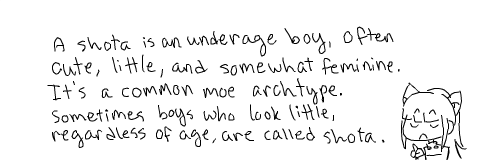 A shota is an underage boy, often
cute, little, and somewhat feminine.
It's a common moe archtype.
Sometimes boys who look little,
regardless of age, are called shota.